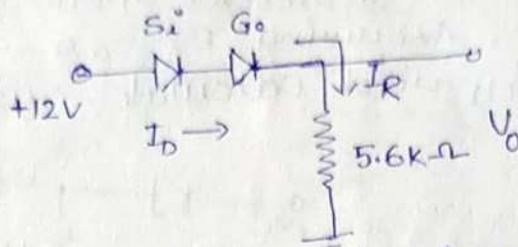 Si Ge
+12V
I_D →
I_R
5.6K-Ω
V_o